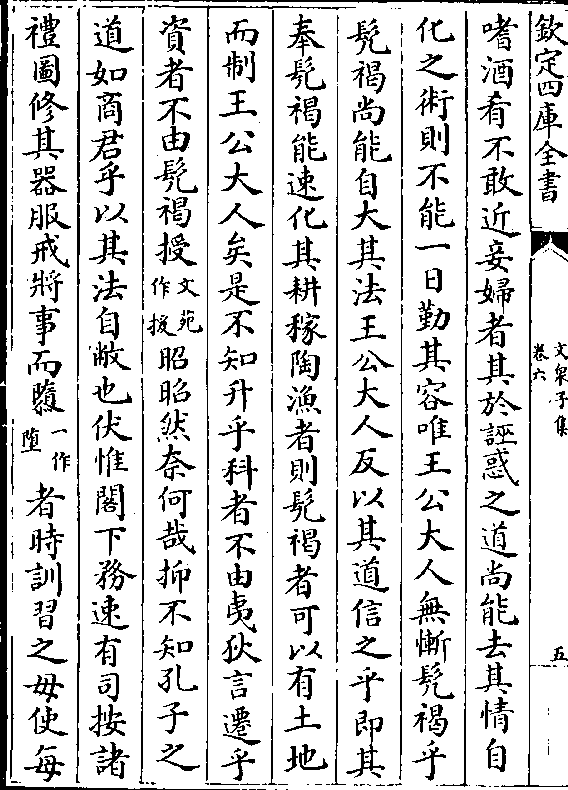 欽定四庫全書
文泉子集
卷六
五
嗜酒肴不敢近妾婦者其於誣惑之道尚能去其情自
化之術則不能一日勤其容唯王公大人無慚髡褐乎
髡褐尚能自大其法王公大人反以其道信之乎即其
奉髡褐能速化其耕稼陶漁者則髡褐者可以有土地
而制王公大人矣是不知升乎科者不由夷狄言遷乎
資者不由髡褐授文苑作援昭昭然奈何哉抑不知孔子之
道如商君乎以其法自敝也伏惟閣下務速有司按諸
禮圖修其器服戒將事而隳一作墮者時訓習之毋使每